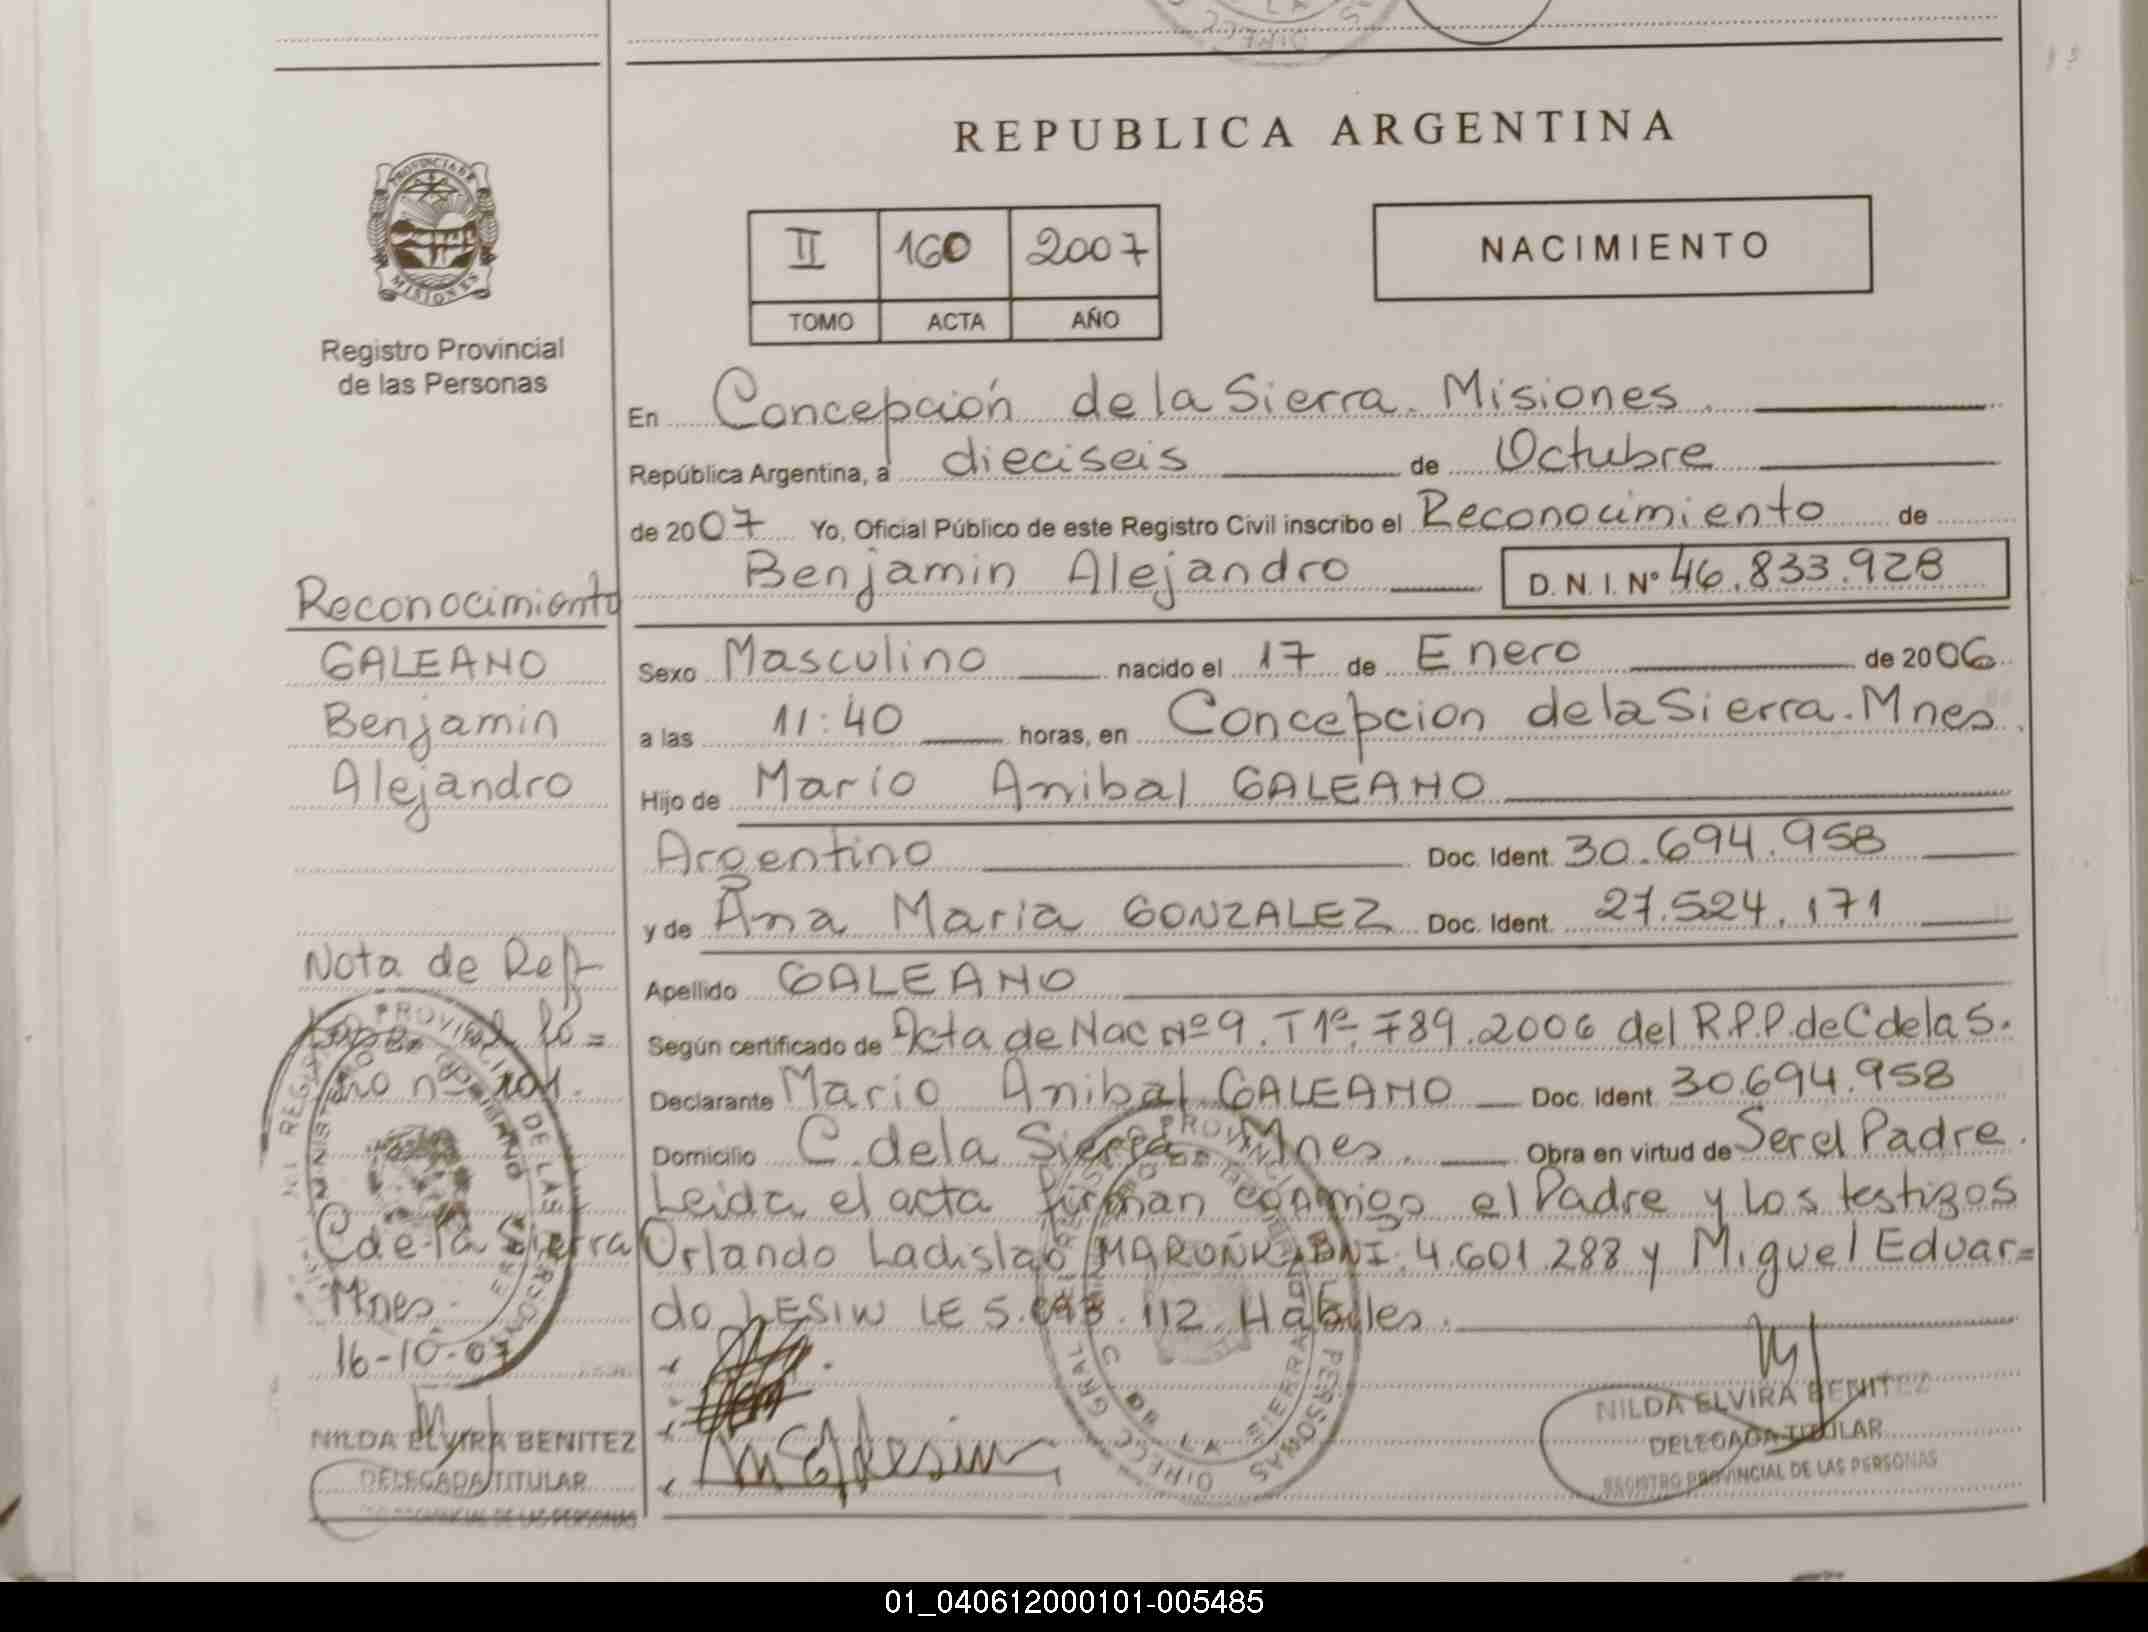 REPUBLICA ARGENTINA
PROVINCIA DE
MISIONES
Registro Provincial
de las Personas
II 160 2007
TOMO ACTA AÑO
NACIMIENTO
En Concepción de la Sierra. Misiones.
República Argentina, a dieciseis de Octubre
de 2007 Yo, Oficial Público de este Registro Civil inscribo el Reconocimiento de
Benjamin Alejandro D. N. I. Nº 46.833.928
Sexo Masculino nacido el 17 de Enero de 2006
a las 11:40 horas, en Concepcion de la Sierra. Mnes.
Hijo de Mario Anibal GALEANO
Argentino Doc. Ident. 30.694.958
y de Ana Maria GONZALEZ Doc. Ident. 27.524.171
Apellido GALEANO
Según certificado de Acta de Nac Nº 9. T 1º 789.2006 del R.P.P. de C de la S.
Declarante Mario Anibal GALEANO Doc. Ident. 30.694.958
Domicilio C. de la Sierra Mnes. Obra en virtud de Ser el Padre.
Leida el acta firman conmigo el Padre y los testigos
Orlando Ladislao DNI. 4.601.288 y Miguel Eduar=
do LESIW LE 5. 112. Habiles.
NILDA ELVIRA BENITEZ
DELEGADA TITULAR
REGISTRO PROVINCIAL DE LAS PERSONAS
Reconocimiento
GALEANO
Benjamin
Alejandro
Nota de Ref
C de la Sierra
Mnes.
16-10-07
NILDA ELVIRA BENITEZ
DELEGADA TITULAR
01_040612000101-005485